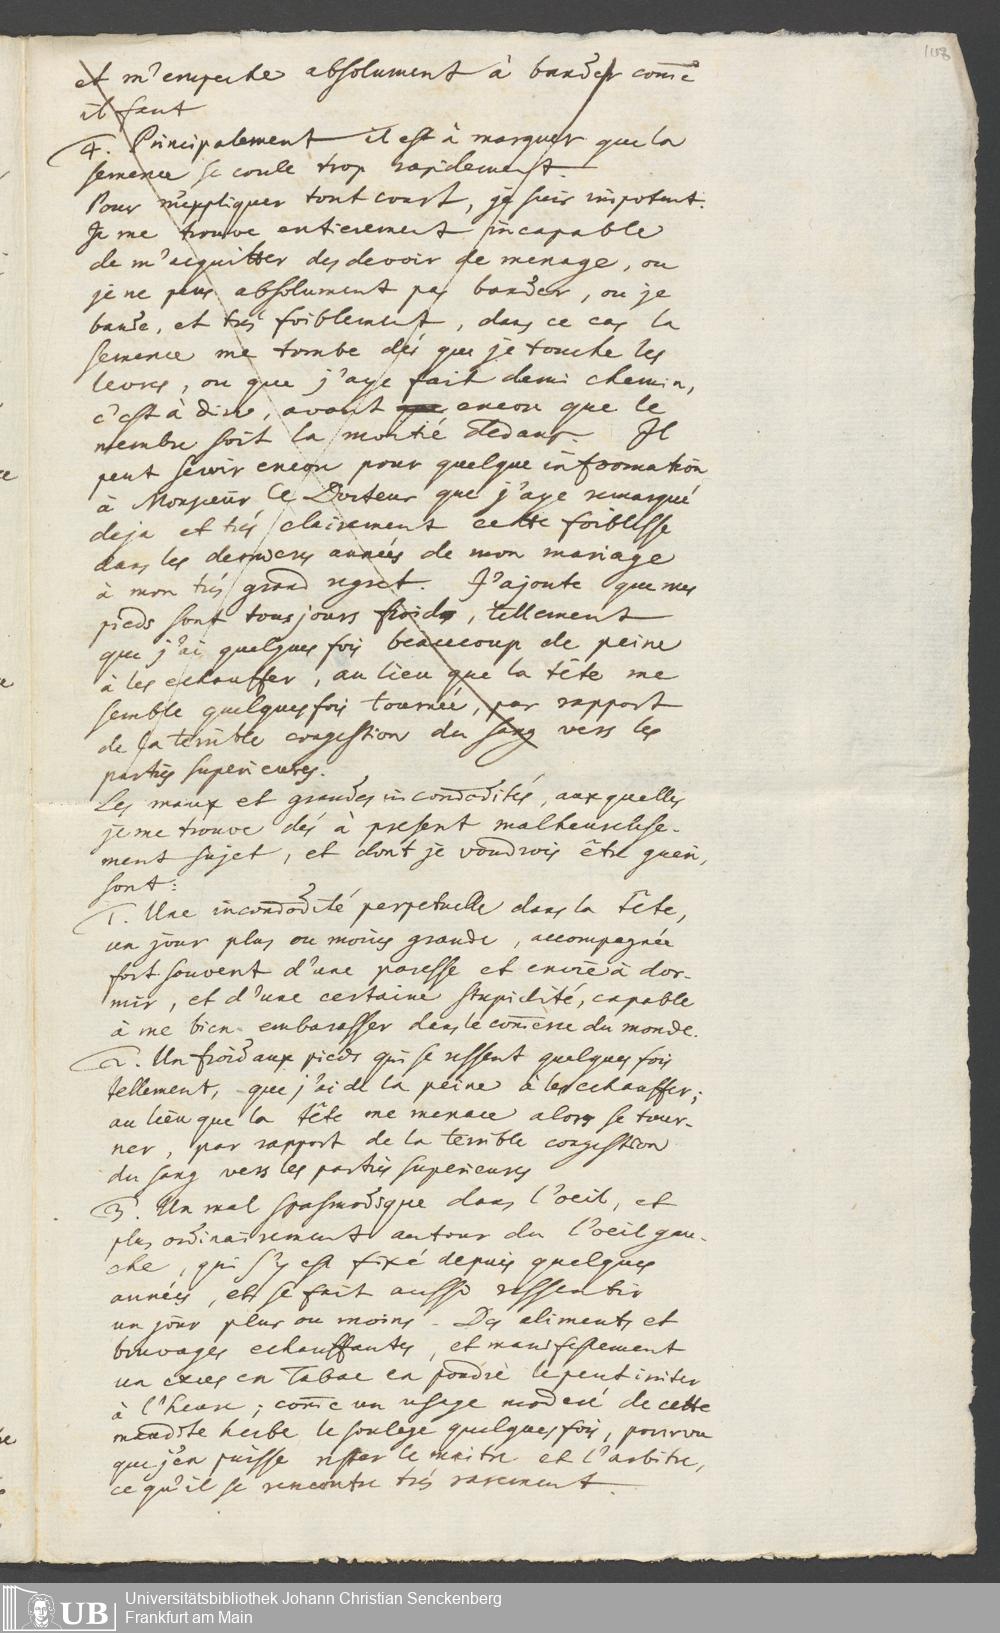 1158
et m'empeche absolument à bander come
il faut
4. Principalement il est à marquer que la
semence se coule trop rapidement.
Pour m'expliquer tout court, je suis impotent.
Je me trouve entierement incapable
de m'acquitter des devoir de menage, ou
je ne peus absolument pas bander, ou je
bande, et trés foiblement, dans ce cas la
semence me tombe dés que je touche les
levres, ou que j'aye fait demi chemin,
c'est à dire, avant encor que le
membre soit la moitié dedans. Il
peut servir encor pour quelque information
à Monsieur le Docteur que j'aye remarqué
deja et trés clairement cette foiblesse
dans les dernieres années de mon mariage
à mon trés grand regret. J'ajoute que mes
pieds sont tousjours froids, tellement
que j'ai quelques fois beaucoup de peine
à les echauffer, au lieu que la tête me
semble quelques fois tournée, par rapport
de la terrible congestion du sang vers les
parties superieures.
Les maux et grandes incomodités, auxquelles
je me trouve dés à present malheureuse-
ment sujet, et dont je voudrois être gueri,
sont:
1. Une incomodité perpetuelle dans la tête,
un jour plus ou moins grande, accompagnée
fort souvent d'une paresse et envie à dor-
mir, et d'une certaine stupidité, capable
à me bien embarasser dans le comerce du monde.
2. Un froid aux pieds qui se ressent quelques fois
tellement, que j'ai de la peine à les echauffer;
au lieu que la tête me menace alors se tour-
ner, par rapport de la terrible congestion
du sang vers les parties superieures
3. Un mal spasmodique dans l'oeil, et
plus ordinairement autour du l'oeil gau-
che, qui s'y est fixé depuis quelques
années, et se fait aussi ressentir
un jour plus ou moins. Des aliments et
bruvages echauffantes, et manifestement
un exces en Tabac en poudre le peut irriter
à l'heure; come un usage moderé de cette
maudite herbe le soulage quelques fois, pourvu
que j'en puisse rester le maitre et l'arbitre,
ce qu'il se rencontre trés rarement.
UB
Universitätsbibliothek Johann Christian Senckenberg
Frankfurt am Main